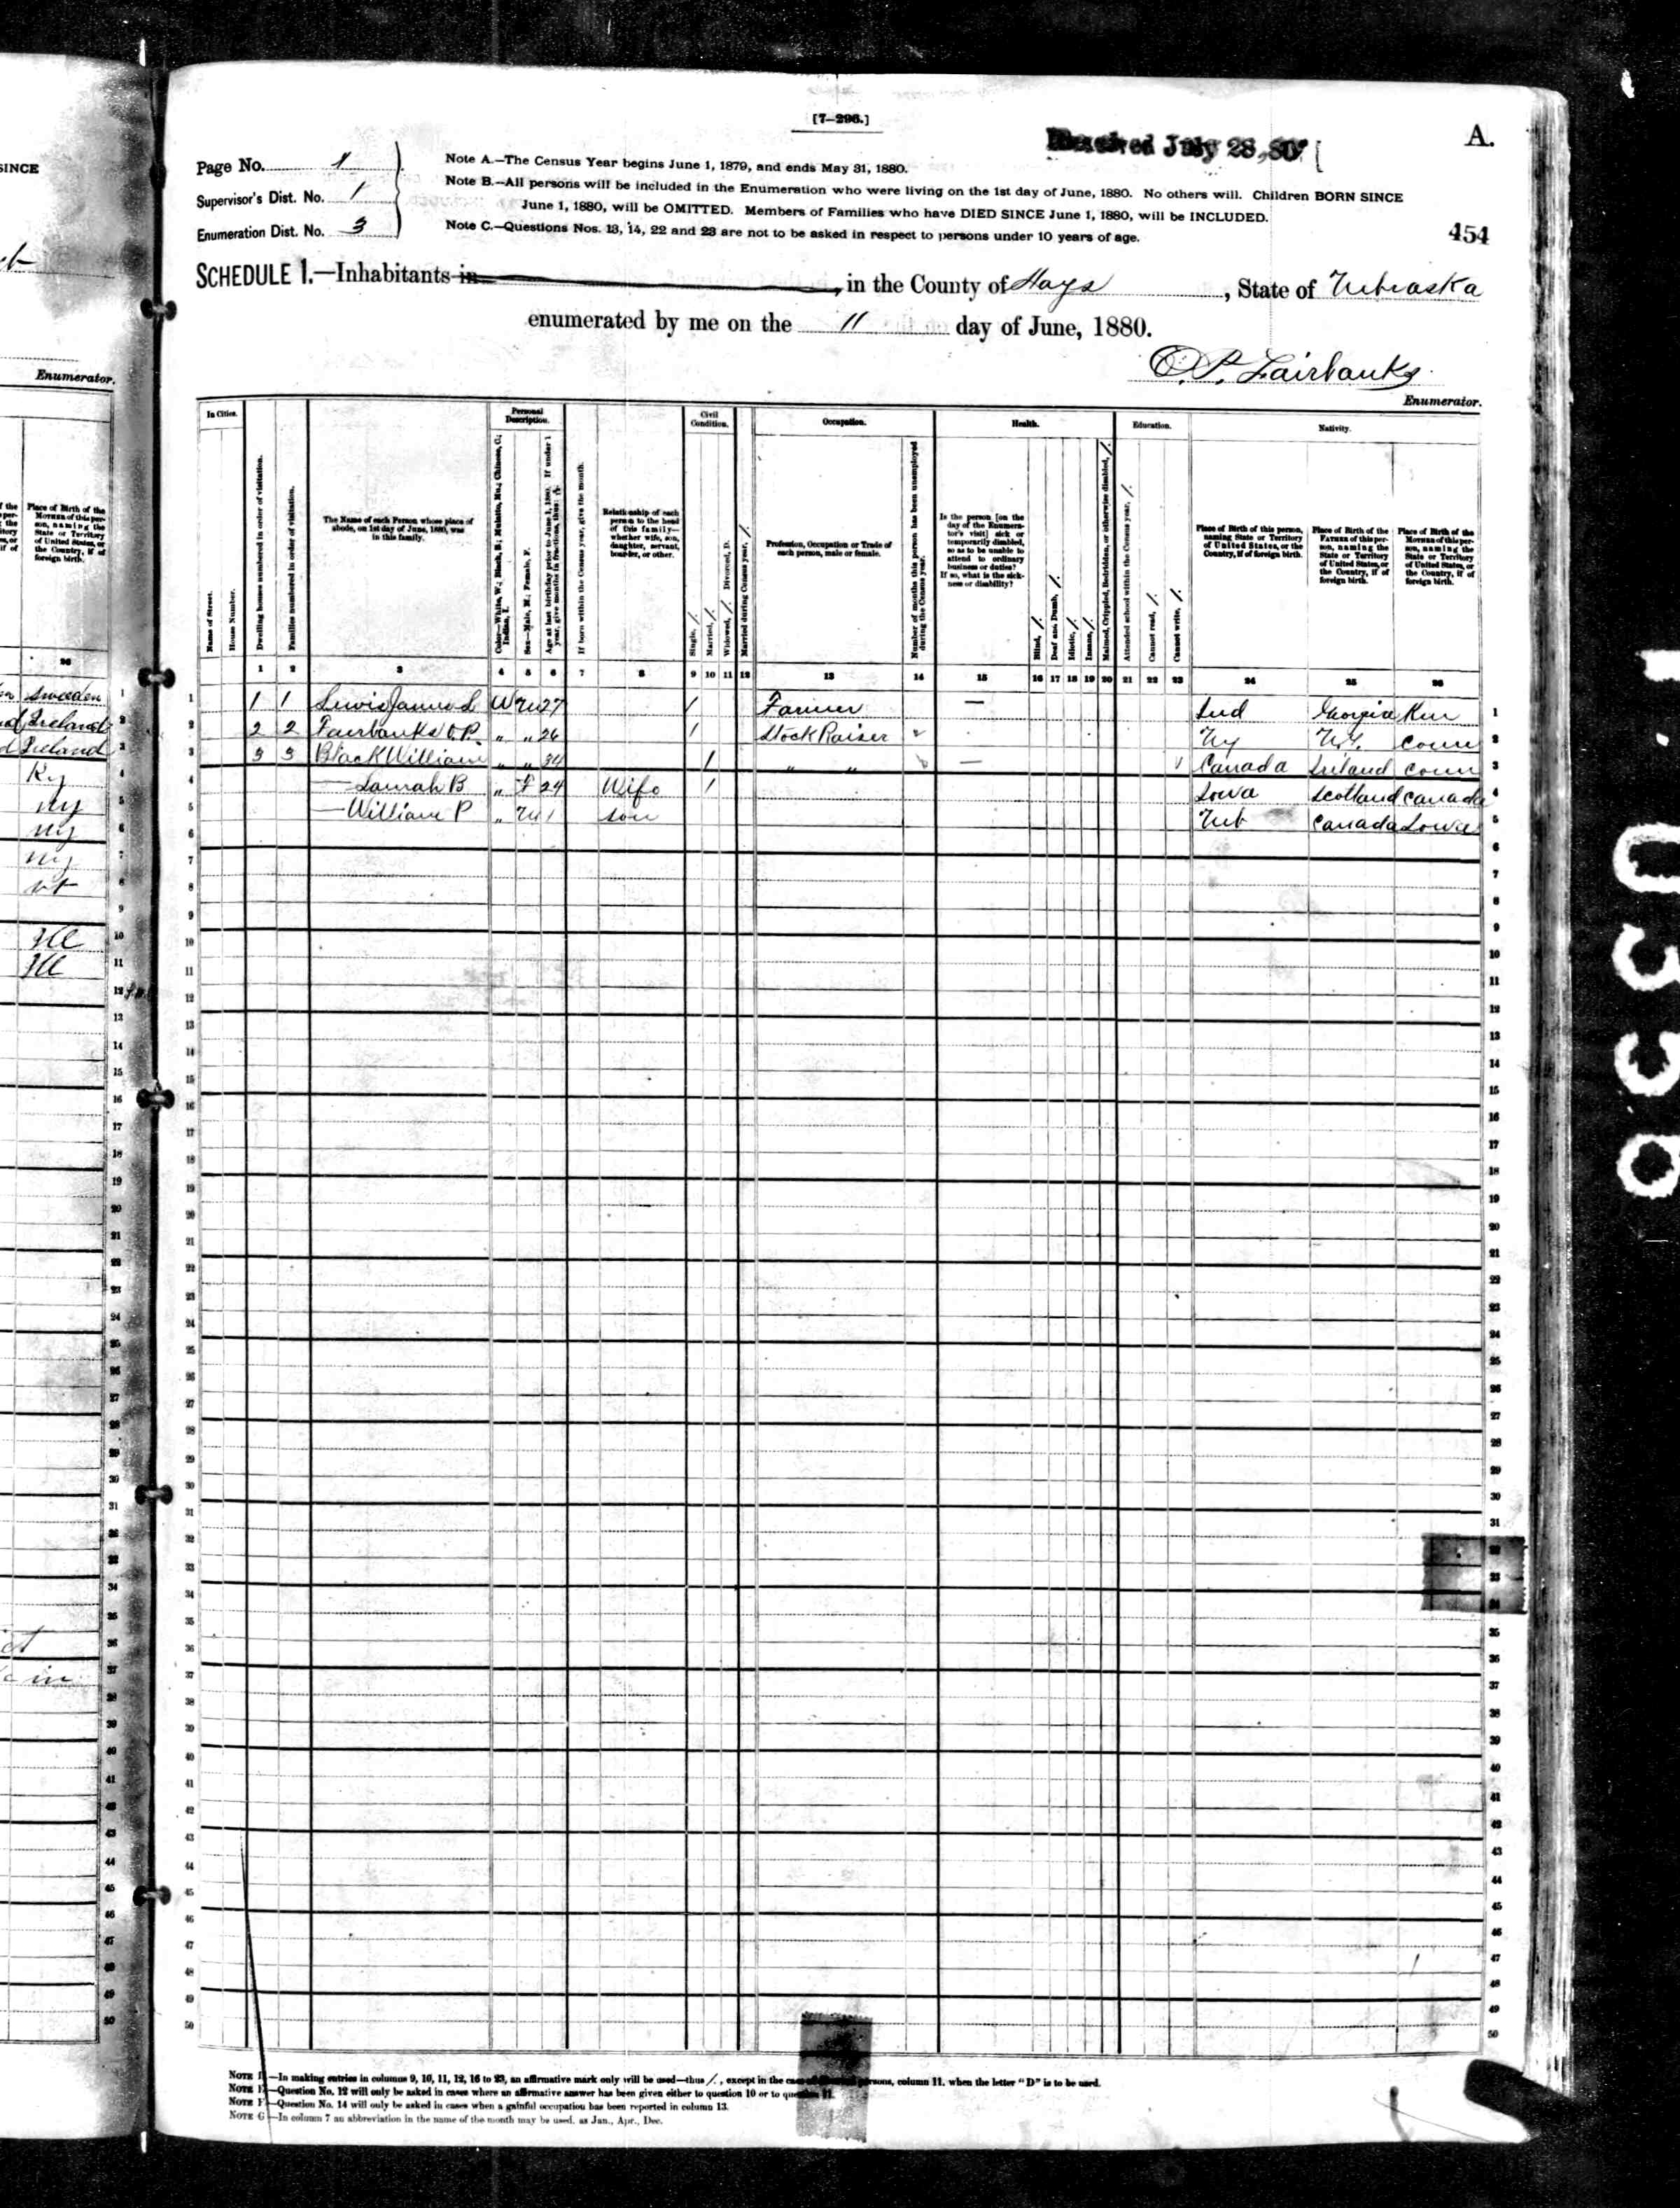 [7-296.]
Received July 28, 80
A.
Page No. 1
Supervisor's Dist. No. 1
Enumeration Dist. No. 3
Note A.—The Census Year begins June 1, 1879, and ends May 31, 1880.
Note B.—All persons will be included in the Enumeration who were living on the 1st day of June, 1880. No others will. Children BORN SINCE
June 1, 1880, will be OMITTED. Members of Families who have DIED SINCE June 1, 1880, will be INCLUDED.
Note C.—Questions Nos. 13, 14, 22 and 23 are not to be asked in respect to persons under 10 years of age.
454
SCHEDULE 1.—Inhabitants in , in the County of Hays , State of Nebraska
enumerated by me on the 11 day of June, 1880.
O. P. Fairbanks
Enumerator.
In Cities.
Name of Street.
House Number.
Dwelling houses numbered in order of visitation.
Families numbered in order of visitation.
The Name of each Person whose place of
abode, on 1st day of June, 1880, was
in this family.
Personal
Description.
Color—White, W.; Black, B.; Mulatto, Mu.; Chinese, C.;
Indian, I.
Sex—Male, M.; Female, F.
Age at last birthday prior to June 1, 1880. If under 1
year, give months in fractions, thus:
If born within the Census year, give the month.
Relationship of each
person to the head
of this family—
whether wife, son,
daughter, servant,
boarder, or other.
Civil
Condition.
Single, /.
Married, /.
Widowed, /. Divorced, D.
Married during Census year, /.
Occupation.
Profession, Occupation or Trade of
each person, male or female.
Number of months this person has been unemployed
during the Census year.
Health.
Is the person [on the
day of the Enumera-
tor's visit] sick or
temporarily disabled,
so as to be unable to
attend to ordinary
business or duties?
If so, what is the sick-
ness or disability?
Blind, /.
Deaf and Dumb, /.
Idiotic, /.
Insane, /.
Maimed, Crippled, Bedridden, or otherwise disabled, /.
Education.
Attended school within the Census year, /.
Cannot read, /.
Cannot write, /.
Nativity.
Place of Birth of this person,
naming State or Territory
of United States, or the
Country, if of foreign birth.
Place of Birth of the
FATHER of this per-
son, naming the
State or Territory
of United States, or
the Country, if of
foreign birth.
Place of Birth of the
MOTHER of this per-
son, naming the
State or Territory
of United States, or
the Country, if of
foreign birth.
1 2 3 4 5 6 7 8 9 10 11 12 13 14 15 16 17 18 19 20 21 22 23 24 25 26
1 1 1 Lewis James L W M 27 / Farmer — Ind Georgia Ken 1
2 2 2 Fairbanks O. P. „ „ 26 / Stock Raiser NY N.Y. Conn 2
3 3 3 Black William „ „ 34 / „ „ — / Canada Ireland Conn 3
4 — Laurah B „ F 24 Wife / Iowa Scotland Canada 4
5 — William P „ M 1 son Neb Canada Iowa 5
NOTE D.—In making entries in columns 9, 10, 11, 12, 16 to 23, an affirmative mark only will be used—thus /, except in the case of persons, column 11, when the letter "D" is to be used.
NOTE E.—Question No. 12 will only be asked in cases where an affirmative answer has been given either to question 10 or to question 11.
NOTE F.—Question No. 14 will only be asked in cases when a gainful occupation has been reported in column 13.
NOTE G.—In column 7 an abbreviation in the name of the month may be used, as Jan., Apr., Dec.
SINCE
Enumerator.
Place of Birth of the
MOTHER of this per-
son, naming the
State or Territory
of United States, or
the Country, if of
foreign birth.
26
Sweden
Ireland
Ireland
Ky
NY
NY
NY
Vt
Ill
Ill